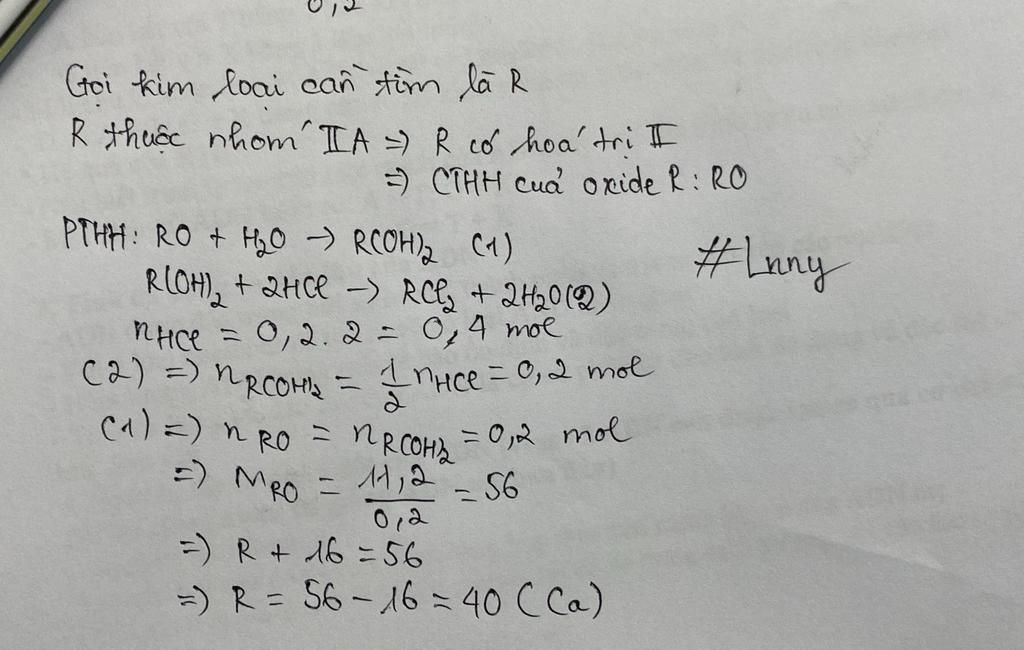 0,2
Gọi kim loại cần tìm là R
R thuộc nhóm IIA => R có hoá trị II
=> CTHH của oxide R : RO
PTHH: RO + H₂O → R(OH)₂ (1)
#Lnny
R(OH)₂ + 2HCl → RCl₂ + 2H₂O (2)
nHCl = 0,2 . 2 = 0,4 mol
(2) => nR(OH)₂ = 1/2 nHCl = 0,2 mol
(1) => nRO = nR(OH)₂ = 0,2 mol
=> MRO = 11,2/0,2 = 56
=> R + 16 = 56
=> R = 56 - 16 = 40 (Ca)